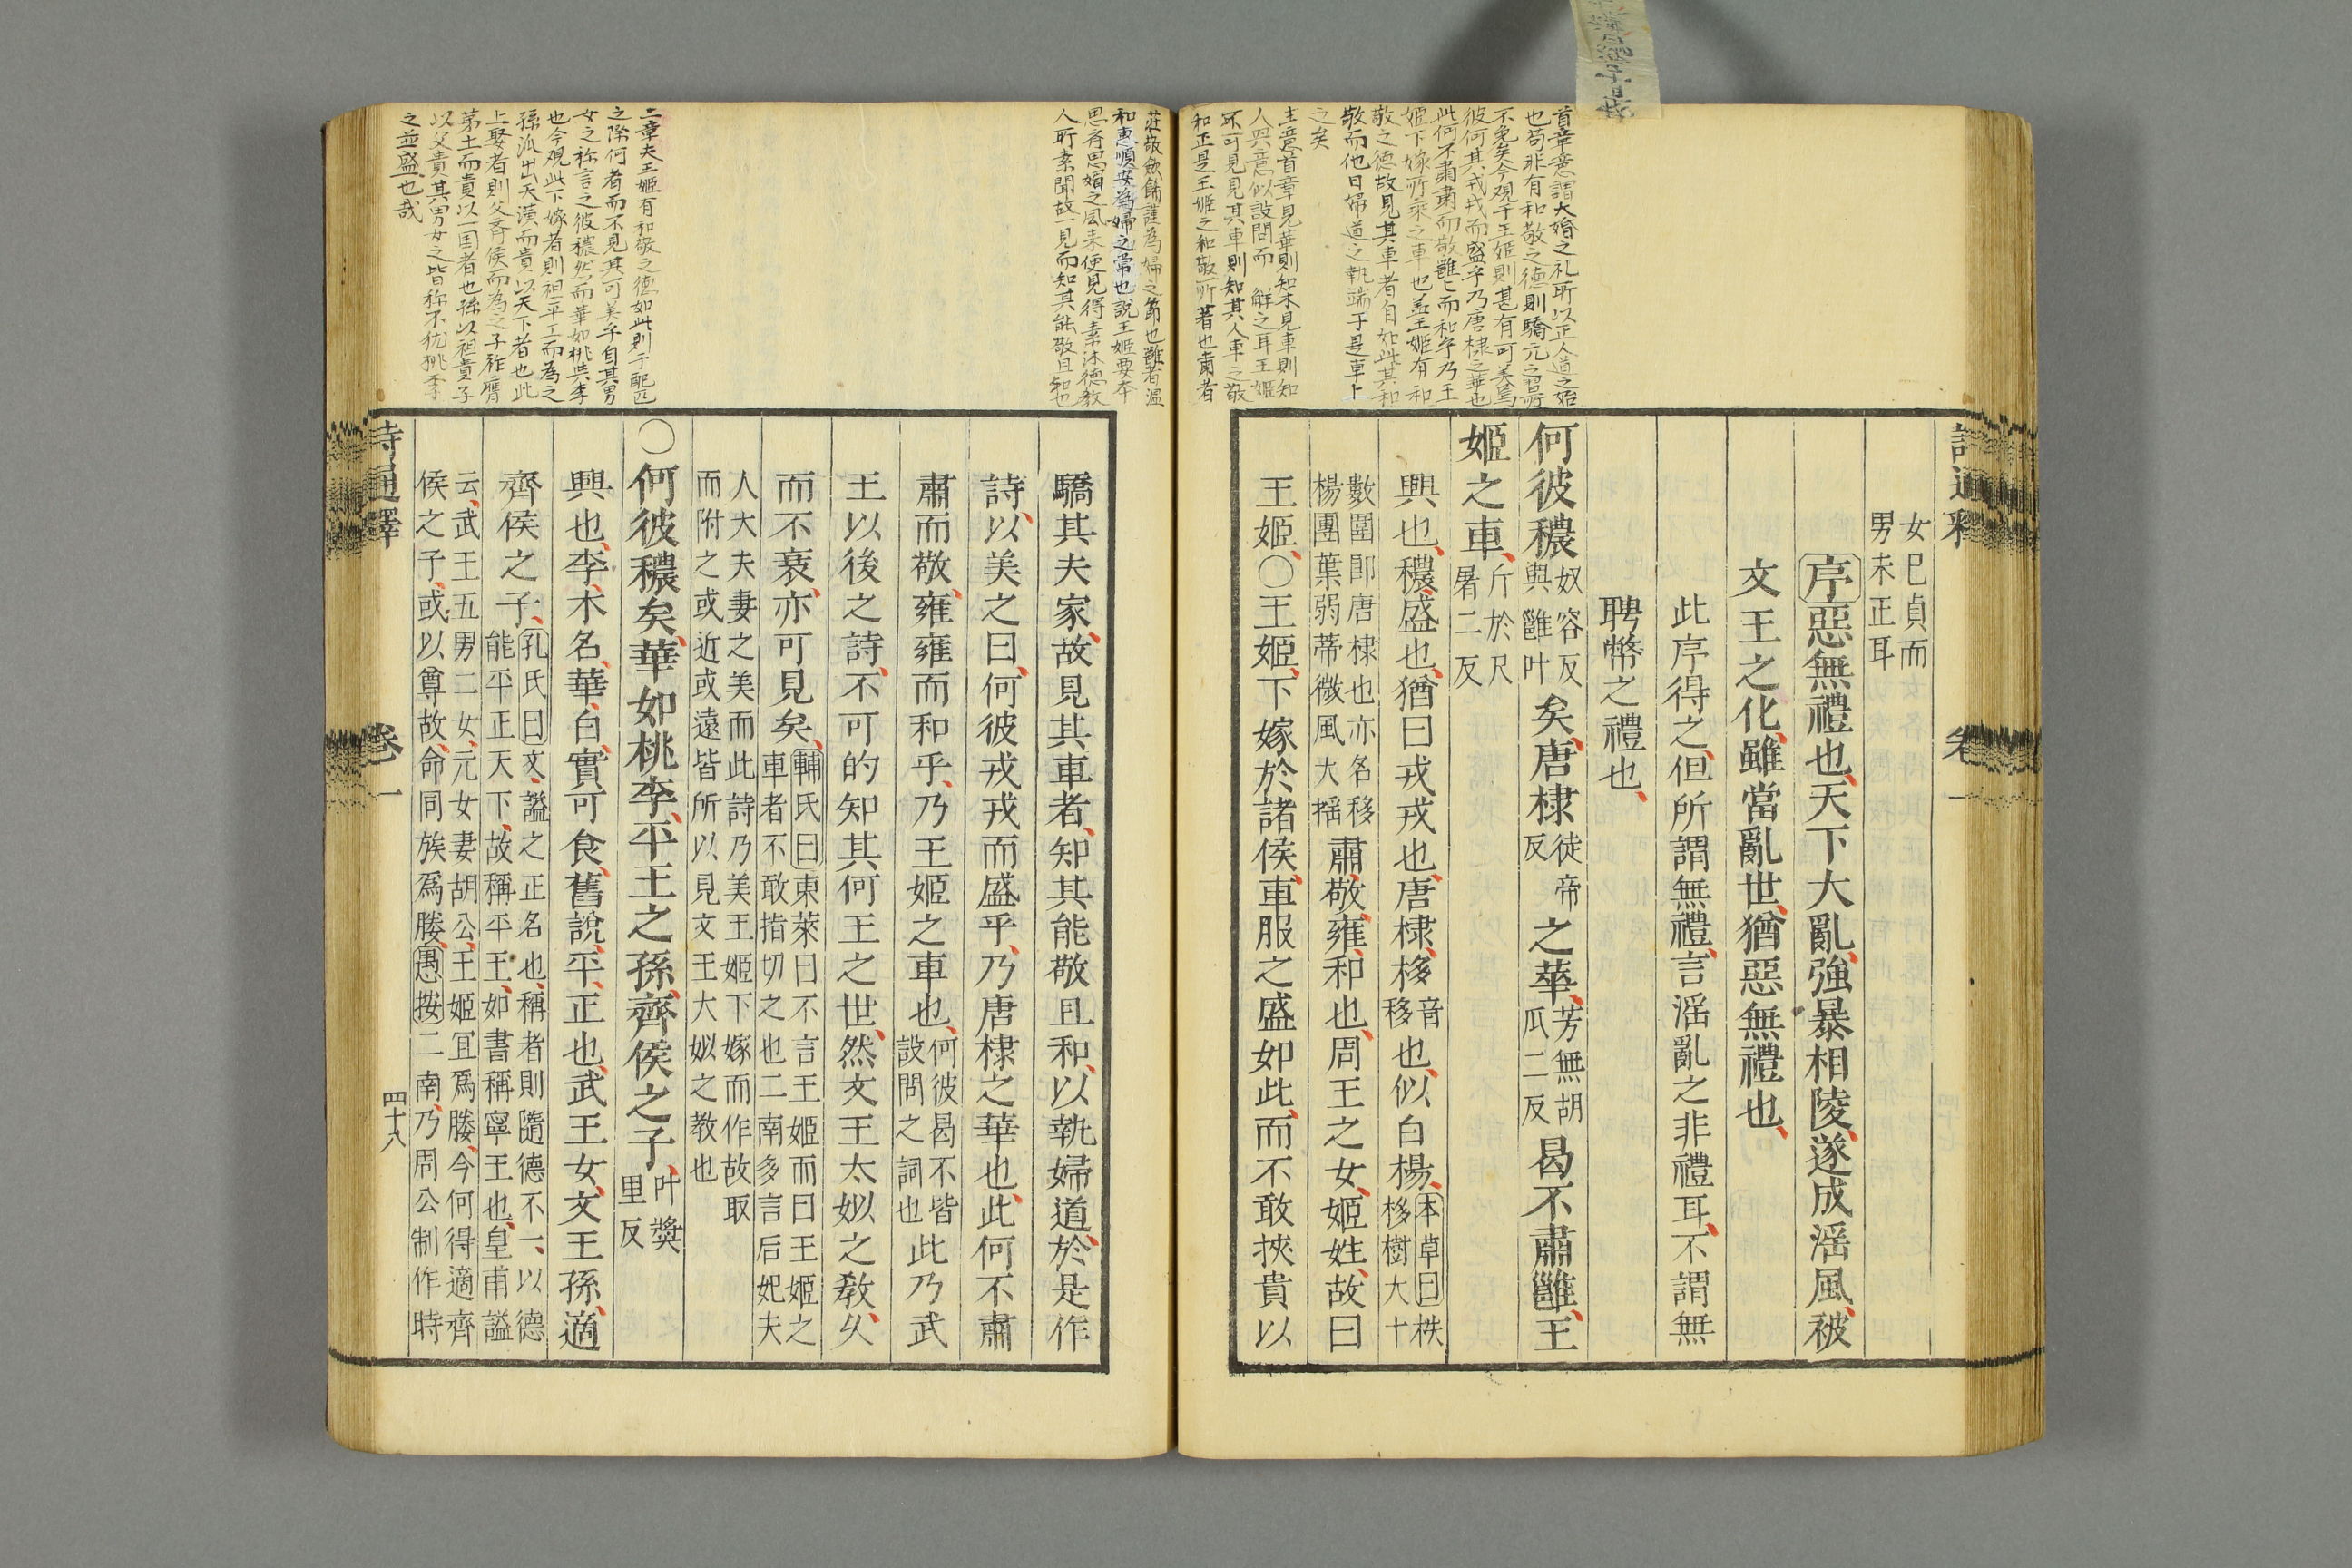 首章意謂大婚之礼所以正人道之始
也苟非有和敬之德則驕亢之習所
不免矣今观于王姬則甚有可美焉
彼何其戎戎而盛乎乃唐棣之華也
此何不肅肅而敬雝雝而和乎乃王
姬下嫁所乘之車也盖王姬有和
敬之德故見其車者自如此其和
敬而他日婦道之執端于是車上
之矣
主意首章見華則知木見車則知
人興意似設問而解之耳王姬
不可見見其車則知其人車之敬
和正是王姬之和敬所著也肅者
女已貞而
男未正耳
序惡無禮也天下大亂強暴相陵遂成淫風被
文王之化雖當亂世猶惡無禮也
此序得之但所謂無禮言淫亂之非禮耳不謂無
聘幣之禮也
何彼穠奴容反與雝叶矣唐棣徒帝反之華芳無胡瓜二反曷不肅雝王
姬之車斤於尺奢二反
興也穠盛也猶曰戎戎也唐棣栘音移也似白楊本草曰栘樹大十
數圍即唐棣也亦名栘
楊團葉弱蒂微風大搖肅敬雍和也周王之女姬姓故曰
王姬○王姬下嫁於諸侯車服之盛如此而不敢挾貴以
詩通釋 卷一
莊敬斂飭謹為婦之節也雝者溫
和惠順安為婦之常也說王姬要本
思齊思媚之風来便見得素沐德教
人所素聞故一見而知其能敬且和也
二章夫王姬有和敬之德如此則于配匹
之際何者而不見其可美乎自其男
女之称言之彼穠然而華如桃與李
也今观此下嫁者則祖平王而為之
孫派出天潢而貴以天下者也此
上娶者則父齊侯而為之子祚膺
茅土而貴以一国者也孫以祖貴子
以父貴其男女之皆称不犹桃李
之並盛也哉
驕其夫家故見其車者知其能敬且和以執婦道於是作
詩以美之曰何彼戎戎而盛乎乃唐棣之華也此何不肅
肅而敬雍雍而和乎乃王姬之車也何彼曷不皆設問之詞也此乃武
王以後之詩不可的知其何王之世然文王太姒之教久
而不衰亦可見矣輔氏曰東萊曰不言王姬而曰王姬之
車者不敢指切之也二南多言后妃夫
人大夫妻之美而此詩乃美王姬下嫁而作故取
而附之或近或遠皆所以見文王大姒之教也
○何彼穠矣華如桃李平王之孫齊侯之子叶獎里反
興也李木名華白實可食舊說平正也武王女文王孫適
齊侯之子孔氏曰文謚之正名也稱者則隨德不一以德
能平正天下故稱平王如書稱寧王也皇甫謚
云武王五男二女元女妻胡公王姬宜爲媵今何得適齊
侯之子或以尊故命同族爲媵愚按二南乃周公制作時
詩通釋 卷一 四十八